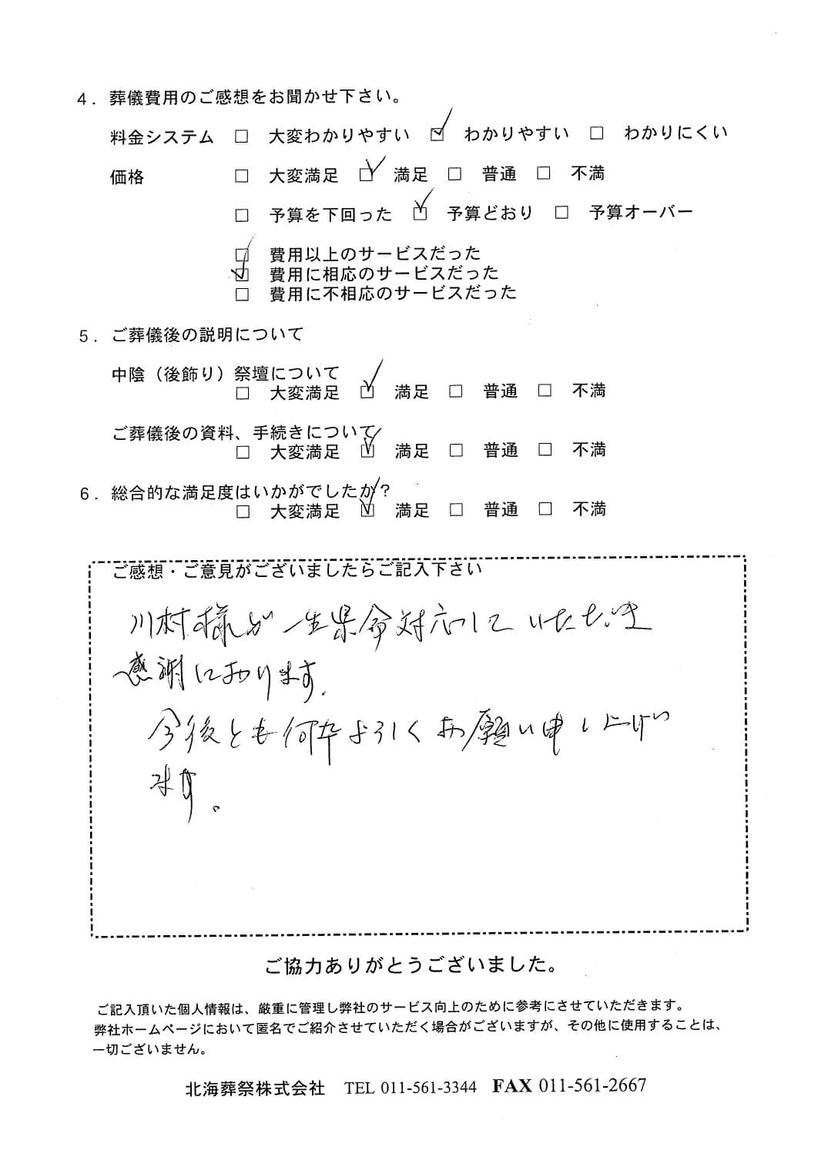 4．葬儀費用のご感想をお聞かせ下さい。
料金システム □ 大変わかりやすい ☑ わかりやすい □ わかりにくい
価格 □ 大変満足 ☑ 満足 □ 普通 □ 不満
□ 予算を下回った ☑ 予算どおり □ 予算オーバー
□ 費用以上のサービスだった
☑ 費用に相応のサービスだった
□ 費用に不相応のサービスだった
5．ご葬儀後の説明について
中陰（後飾り）祭壇について
□ 大変満足 ☑ 満足 □ 普通 □ 不満
ご葬儀後の資料、手続きについて
□ 大変満足 ☑ 満足 □ 普通 □ 不満
6．総合的な満足度はいかがでしたか？
□ 大変満足 ☑ 満足 □ 普通 □ 不満
ご感想・ご意見がございましたらご記入下さい
川村様が一生県命対応していただき
感謝しております。
今後とも何卒よろしくお願い申し上げい
ます。
ご協力ありがとうございました。
ご記入頂いた個人情報は、厳重に管理し弊社のサービス向上のために参考にさせていただきます。
弊社ホームページにおいて匿名でご紹介させていただく場合がございますが、その他に使用することは、
一切ございません。
北海葬祭株式会社 TEL 011-561-3344 FAX 011-561-2667